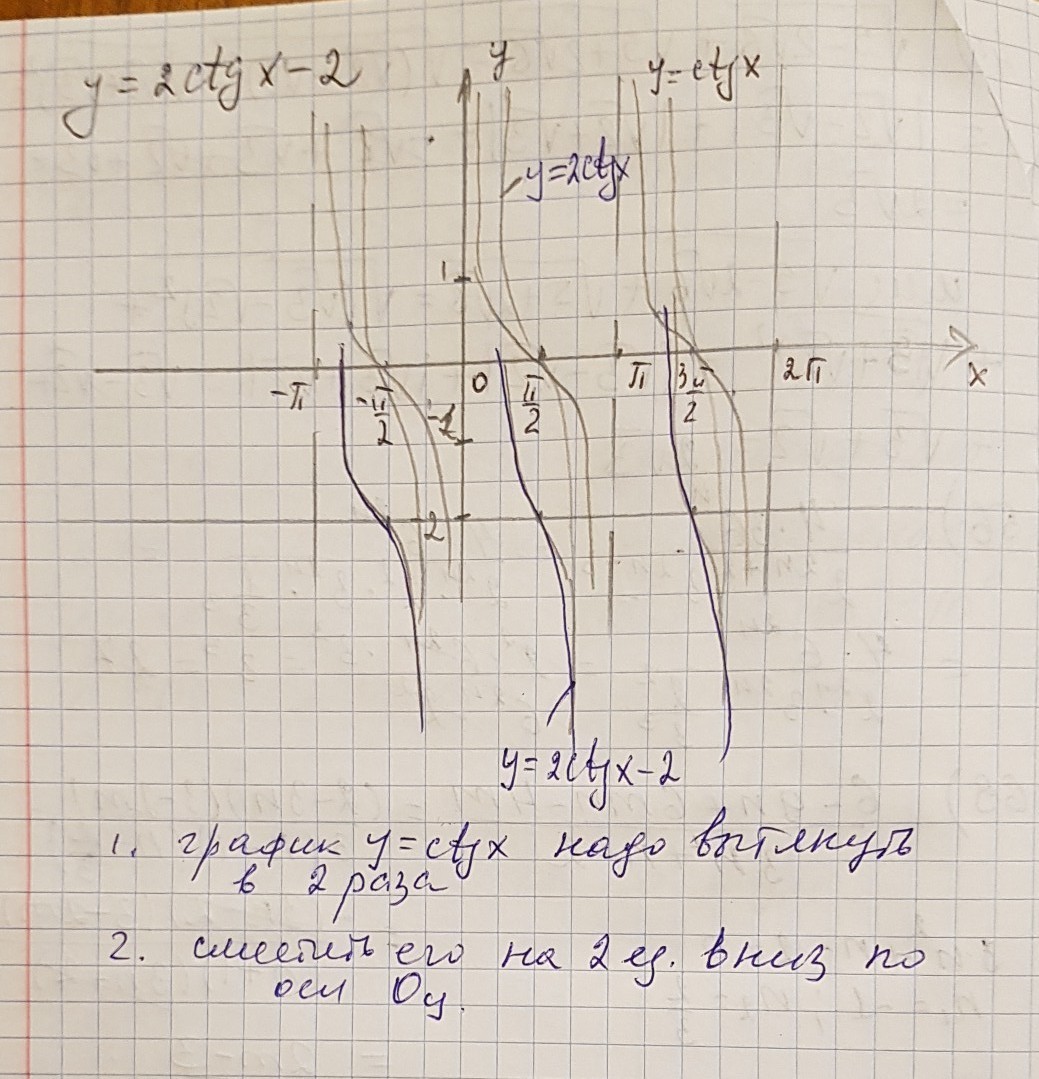 y = 2ctg x - 2
y
y = ctg x
y = 2ctgx
1
-π
-π/2
-1
0
π/2
π
3π/2
2π
x
-2
y = 2ctgx - 2
1. график y = ctgx надо вытянуть
в 2 раза
2. сместить его на 2 ед. вниз по
оси Oy.